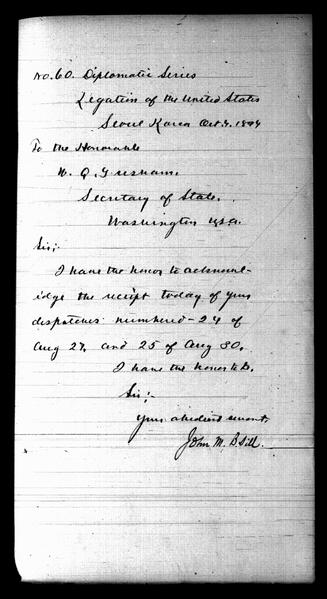 No. 60. Diplomatic Series
Legation of the United States
Seoul Korea Oct 3, 1894
To the Honorable
W. Q. Gresham.
Secretary of State.
Washington U.S.A.
Sir:
I have the honor to acknowl-
edge the receipt today of your
dispatches numbered - 24 of
Aug 27. and 25 of Aug 30.
I have the honor to be.
Sir:
Your obedient servant,
John M. B. Sill.